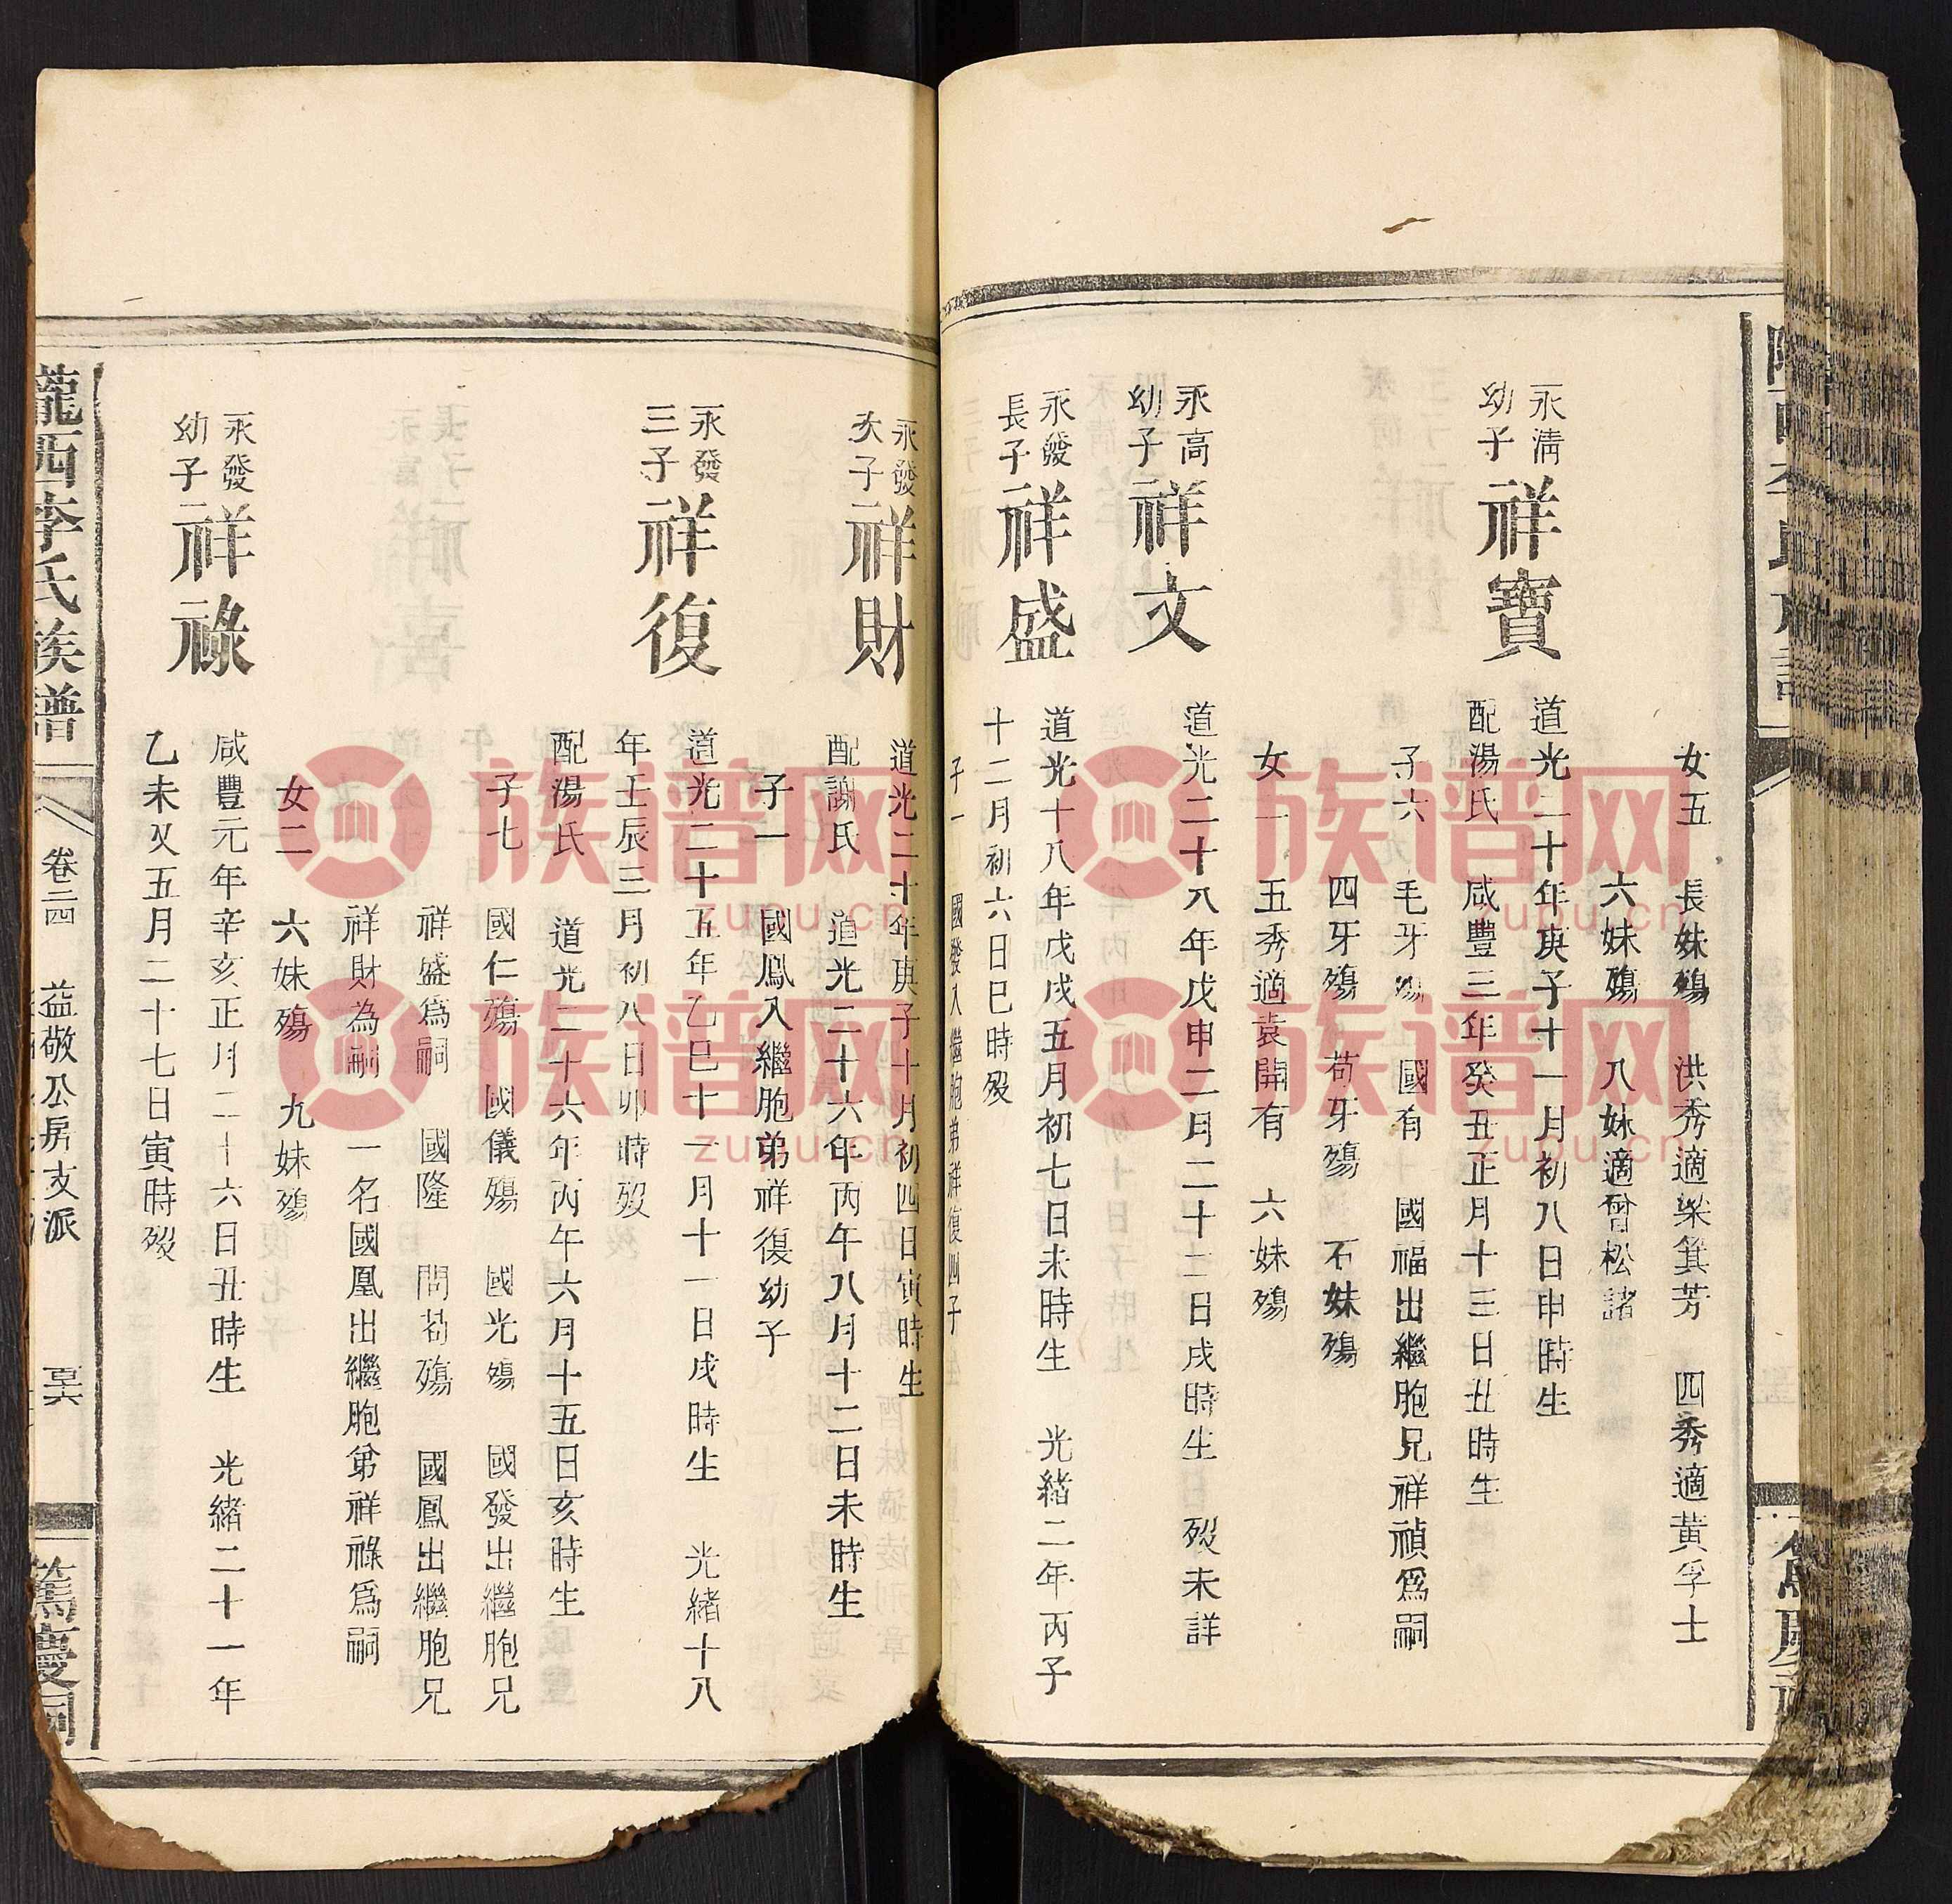 女五　長妹殤　洪秀適梁箕芳　四秀適黃孚士
六妹殤　八妹適曾松諸
永清
幼子
祥寶
道光二十年庚子十一月初八日申時生
配湯氏　咸豐三年癸丑正月十三日丑時生
子六　毛牙殤　國有　國福出繼胞兄祥禎爲嗣
四牙殤　苟牙殤　石妹殤
女二　五秀適袁開有　六妹殤
永高
幼子
祥文
道光二十八年戊申二月二十二日戌時生　歿未詳
永發
長子
祥盛
道光十八年戊戌五月初七日未時生　光緒二年丙子
十二月初六日巳時歿
子一　國發入繼胞弟祥復四子
永發
次子
祥財
道光二十年庚子十月初四日寅時生
配謝氏　道光二十六年丙午八月十二日未時生
子一　國鳳入繼胞弟祥復幼子
永發
三子
祥復
道光二十五年乙巳十一月十一日戌時生　光緒十八
年壬辰三月初八日卯時歿
配湯氏　道光二十六年丙午六月十五日亥時生
子七　國仁殤　國儀殤　國光殤　國發出繼胞兄
祥盛爲嗣　國隆　問苟殤　國鳳出繼胞兄
祥財為嗣　一名國凰出繼胞弟祥祿爲嗣
女二　六妹殤　九妹殤
永發
幼子
祥祿
咸豐元年辛亥正月二十六日丑時生　光緒二十一年
乙未又五月二十七日寅時歿
隴西李氏族譜
卷二四
益敬公房支派
篤慶祠
族谱网
zupu.cn
族谱网
zupu.cn
族谱网
zupu.cn
族谱网
zupu.cn